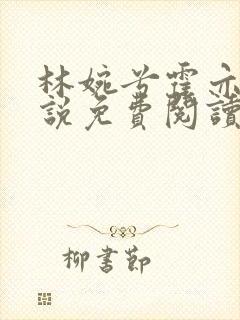 林婉兮霍亦
說免費閱讀
柳書節